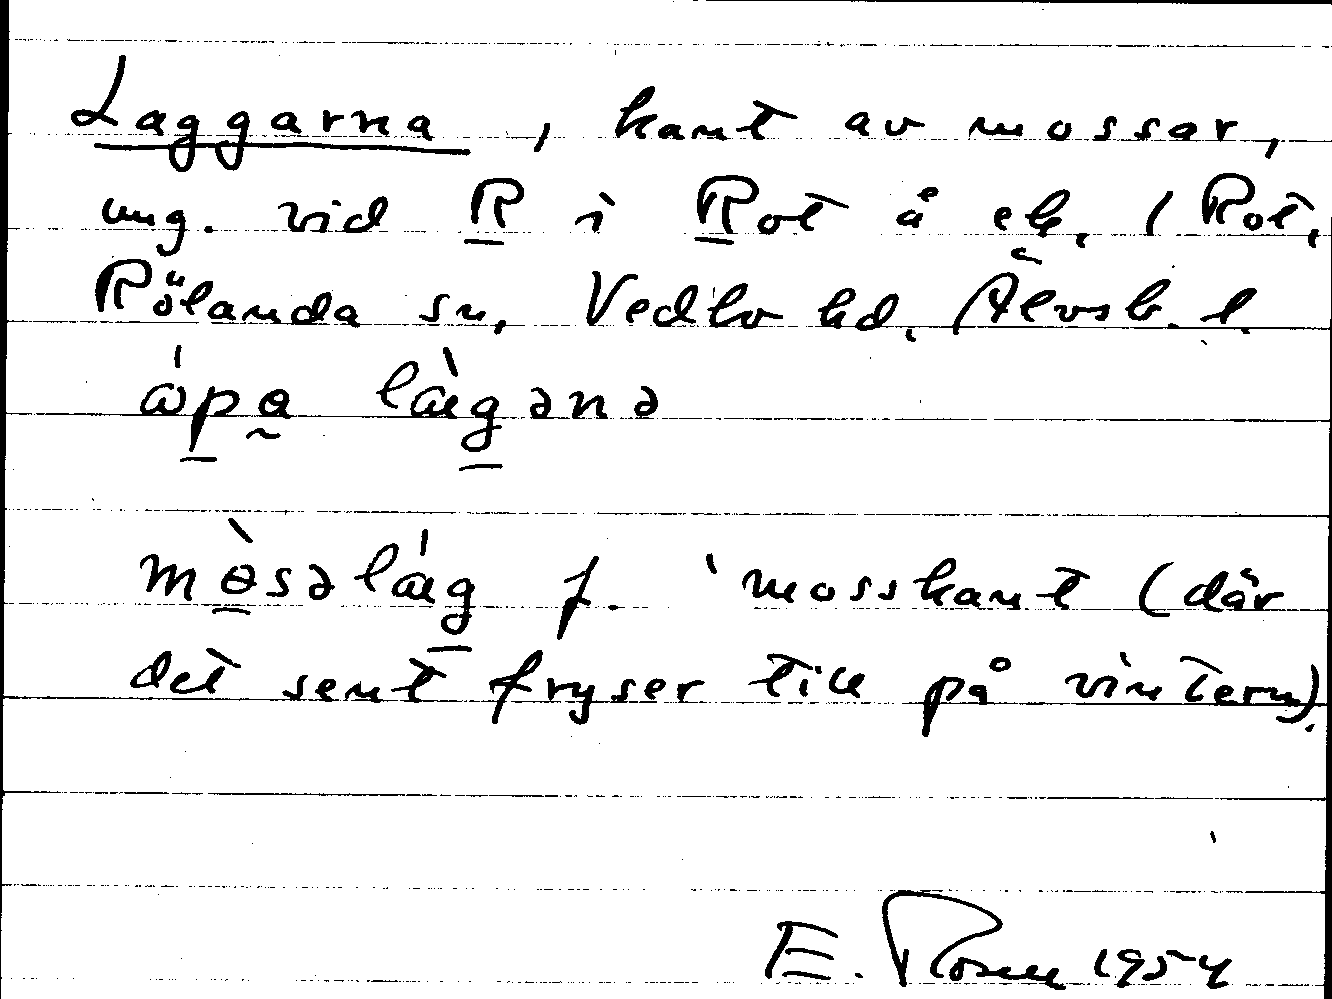 Laggarna, kant av mossar,
ung. vid R i Rot å ek. (Rot,
Rölanda sn, Vedbo hd, Älvsb. l.
ὼpa làgənə
mòsəlág f. 'mosskant (där
det sent fryser till på vintern).
E. Rosen 1954